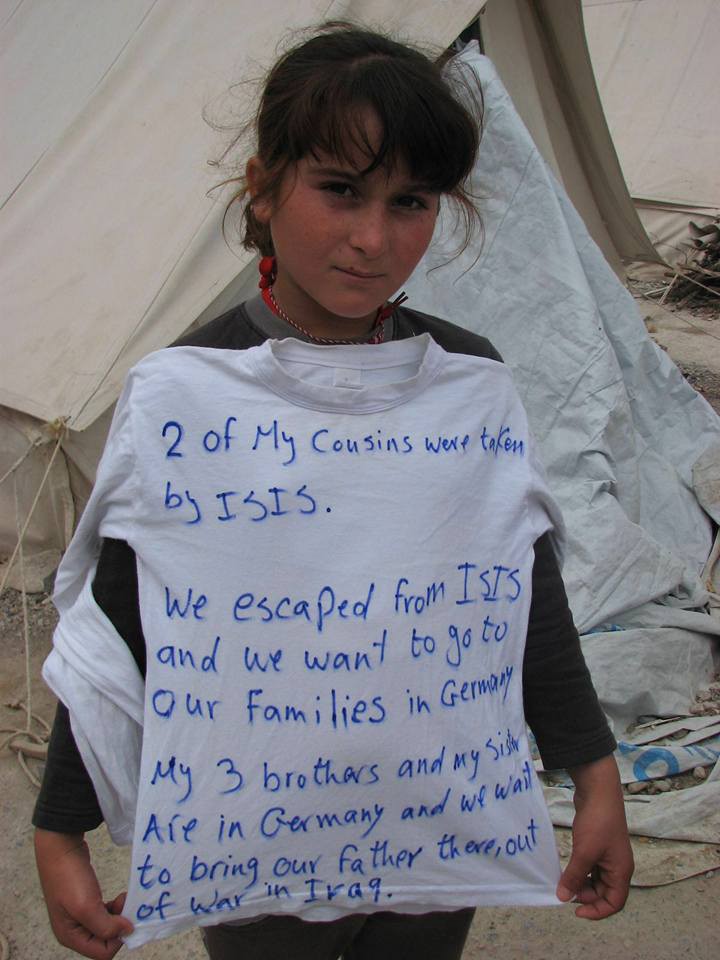 2 of My Cousins were taken
by ISIS.
We escaped from ISIS
and we want to go to
Our families in Germany
My 3 brothers and my Sister
Are in Germany and we wait
to bring our father there, out
of war in Iraq.